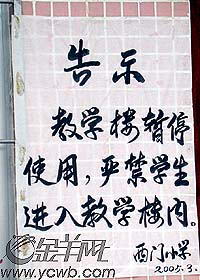 告示
教学楼暂停
使用，严禁学生
进入教学楼内。
西门小学
2005.3.
金羊网
www.ycwb.com